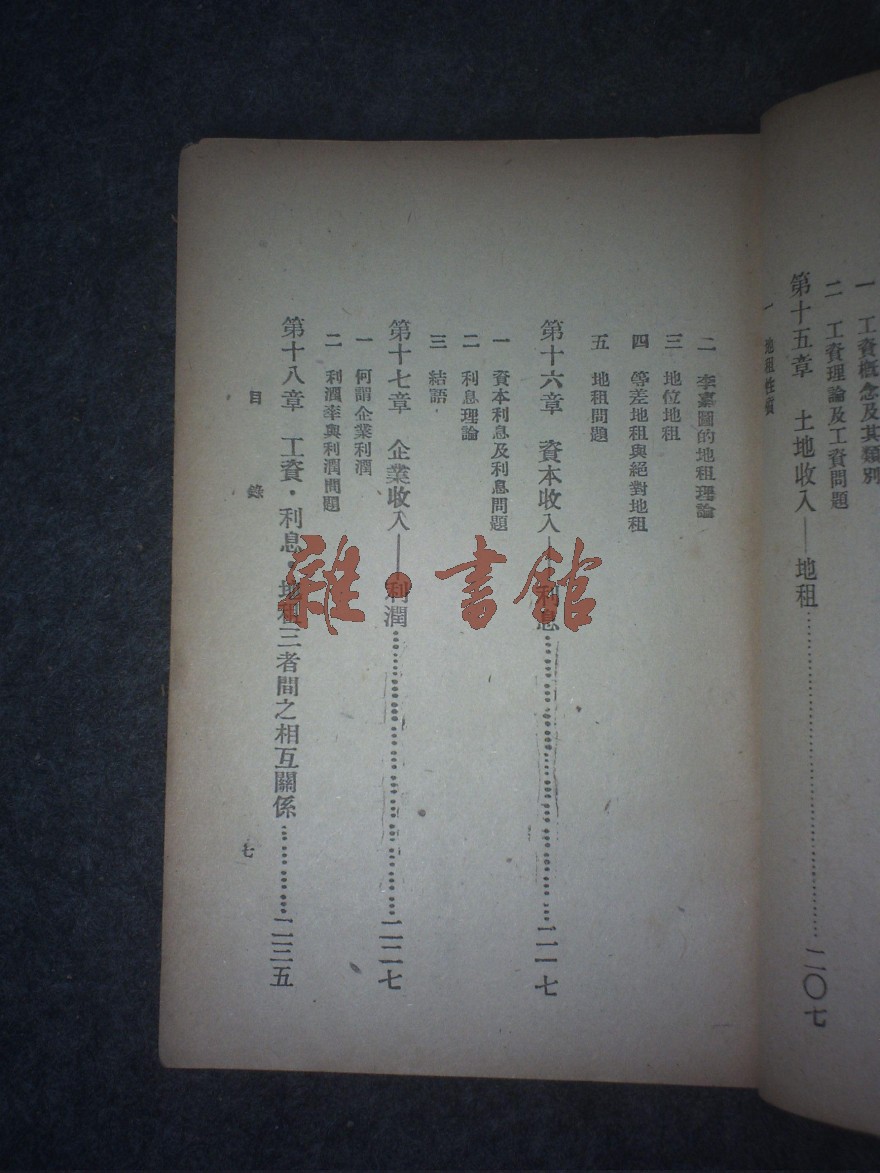 一　工資概念及其類別
二　工資理論及工資問題
第十五章　土地收入——地租……………………二〇七
一　地租性質
二　李嘉圖的地租理論
三　地位地租
四　等差地租與絕對地租
五　地租問題
第十六章　資本收入——利息……………………二一七
一　資本利息及利息問題
二　利息理論
三　結語
第十七章　企業收入——利潤……………………二二七
一　何謂企業利潤
二　利潤率與利潤問題
第十八章　工資・利息・地租三者間之相互關係…………二三五
目錄
七
雜・書館